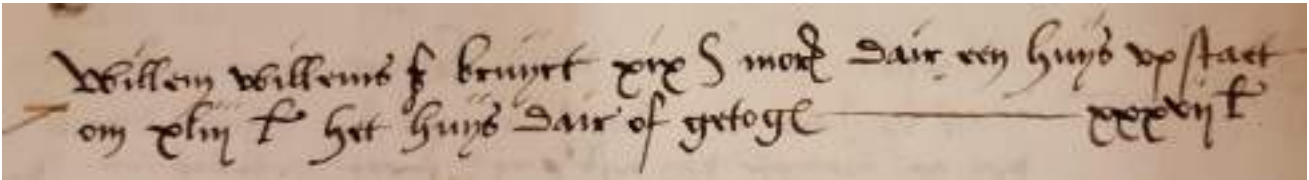 Willem Willems ƺ bruyct xix ½ morg dair een huys vp staet
om xliij £ het huys dair of getog xxxvij £